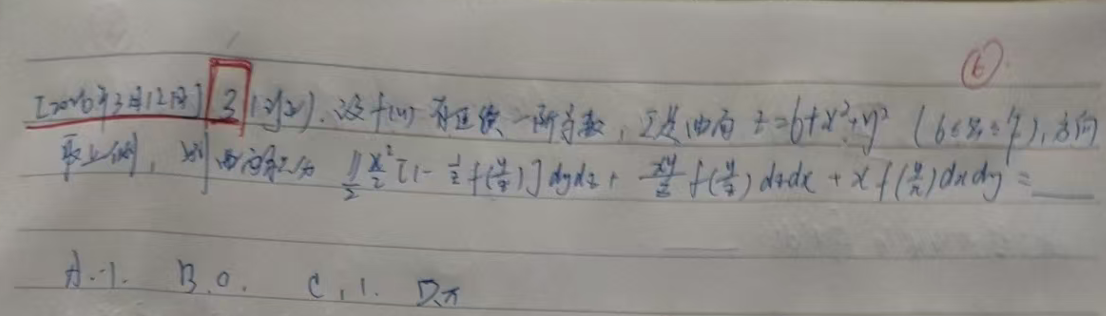 ⑥.
[2026年3月12日] 3 设 f(u) 有连续一阶导数, Σ是曲面 z=6+x²+y² (6≤z≤7), 方向
取上侧, 则曲面积分 ∬_Σ x²/2 [1 - 1/z f(y/z)] dydz + xy/z f(y/z) dzdx + x f(y/z) dxdy = ____
A.-1. B.0. C.1. D.π